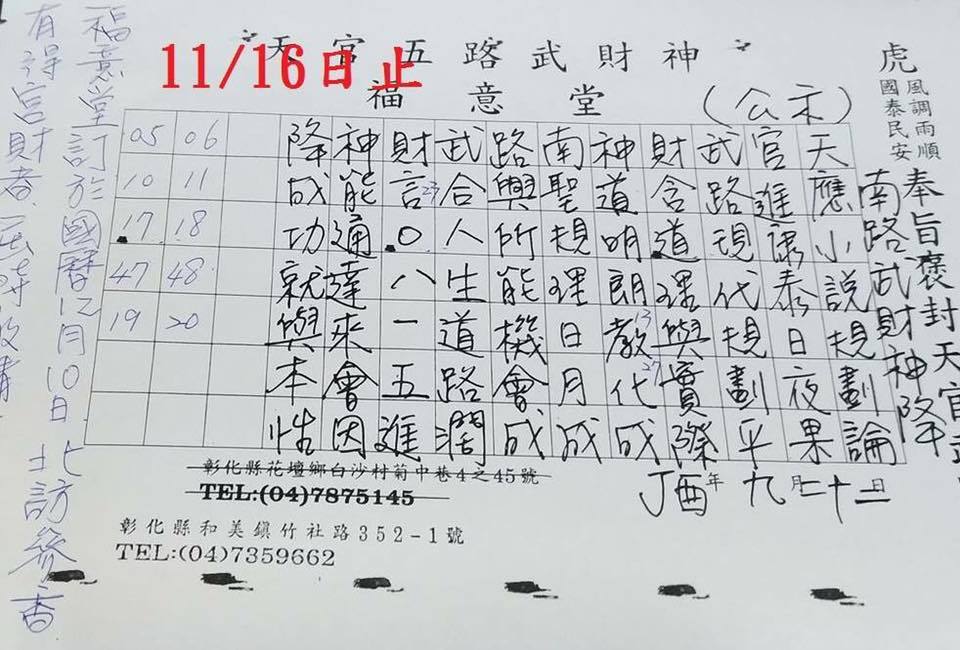 天官五路武財神
11/16日止
福意堂
(公示)
虎
風調雨順
國泰民安
奉旨褒封天官武
南路武財神降
天應小說規劃論
官進康泰日夜果
武路現代規劃平
財含道理與實際
神道明朗教化成
13
27
南聖規理日月成
路與所能機會成
武合人生道路濶
財言0八一五進
23
神能通達來會因
降成功就與本性
06 11 18 48 20
05 10 17 47 19
丁酉年九月二十二日
彰化縣花壇鄉白沙村菊中巷4之45號
TEL:(04)7875145
彰化縣和美鎮竹社路352-1號
TEL:(04)7359662
福意堂訂於國曆12月10日北訪參香
有得官財者